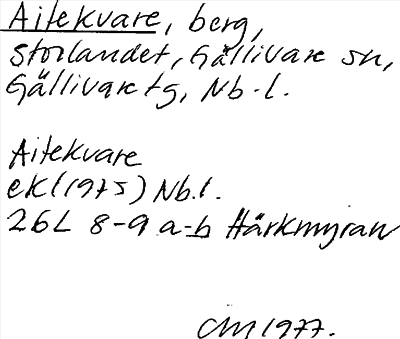 Aitekvare, berg,
Storlandet, Gällivare sn,
Gällivare tg, Nb. l.
Aitekvare
ekl (1975) Nb. l.
26L 8-9 a-b Härkmyran
CM 1977.